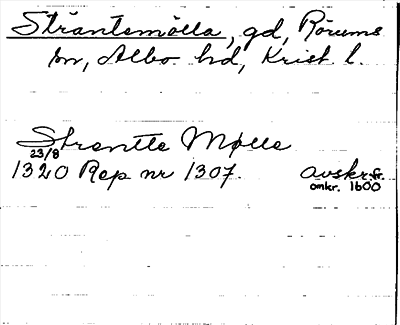 Stråntemölla, gd, Rörums
sn, Albo hd, Krist l.
Strantte Mølle
23/8
1320 Rep nr 1307. avskr. fr.
omkr. 1600